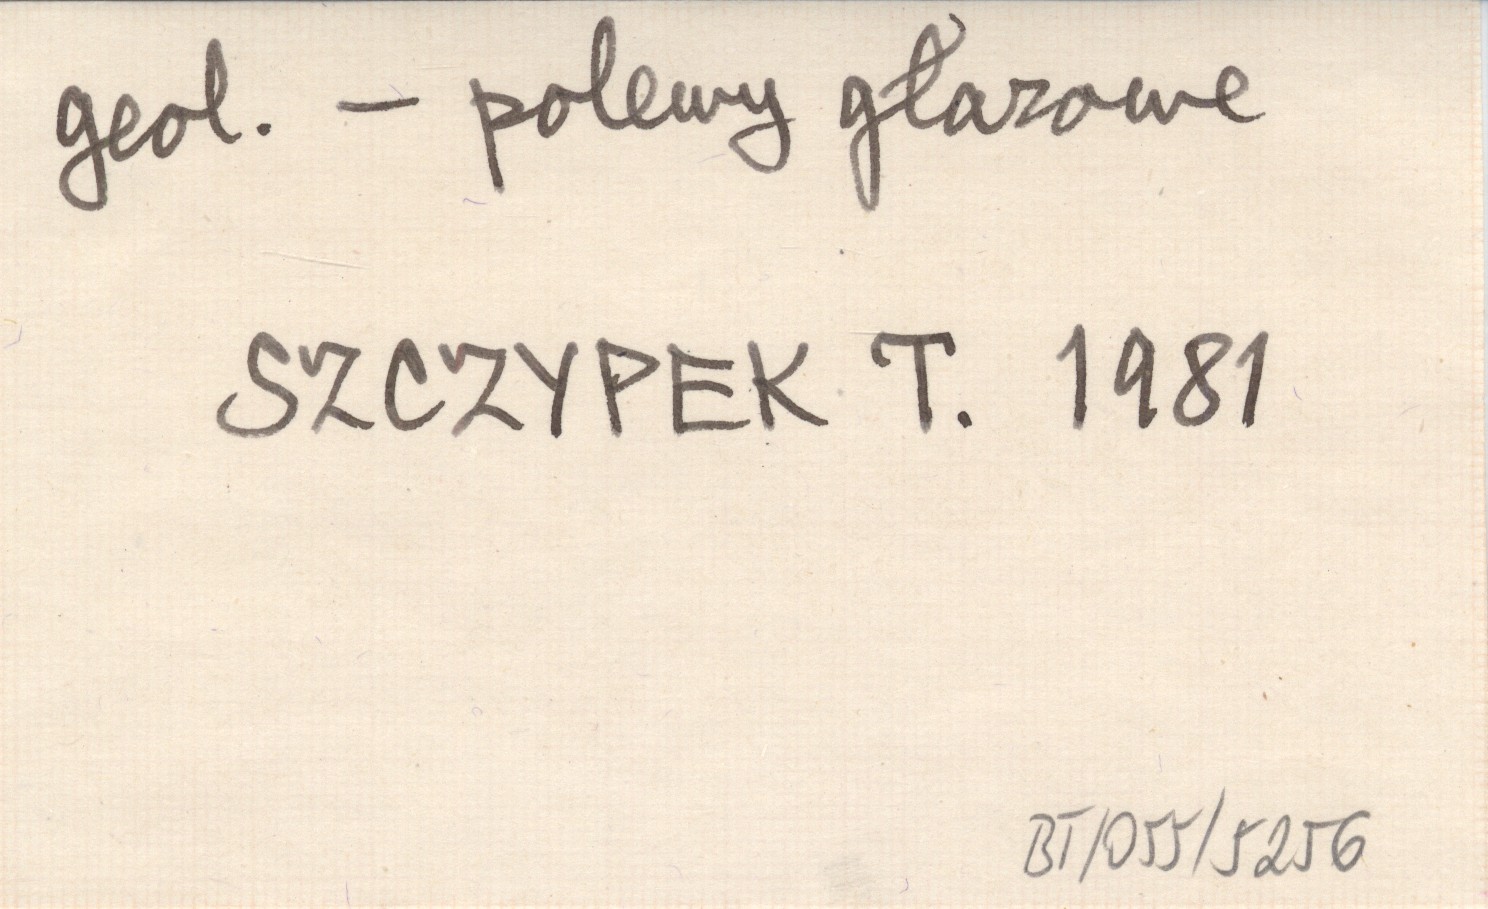 geol. – polewy głazowe
SZCZYPEK T. 1981
BT/055/5256